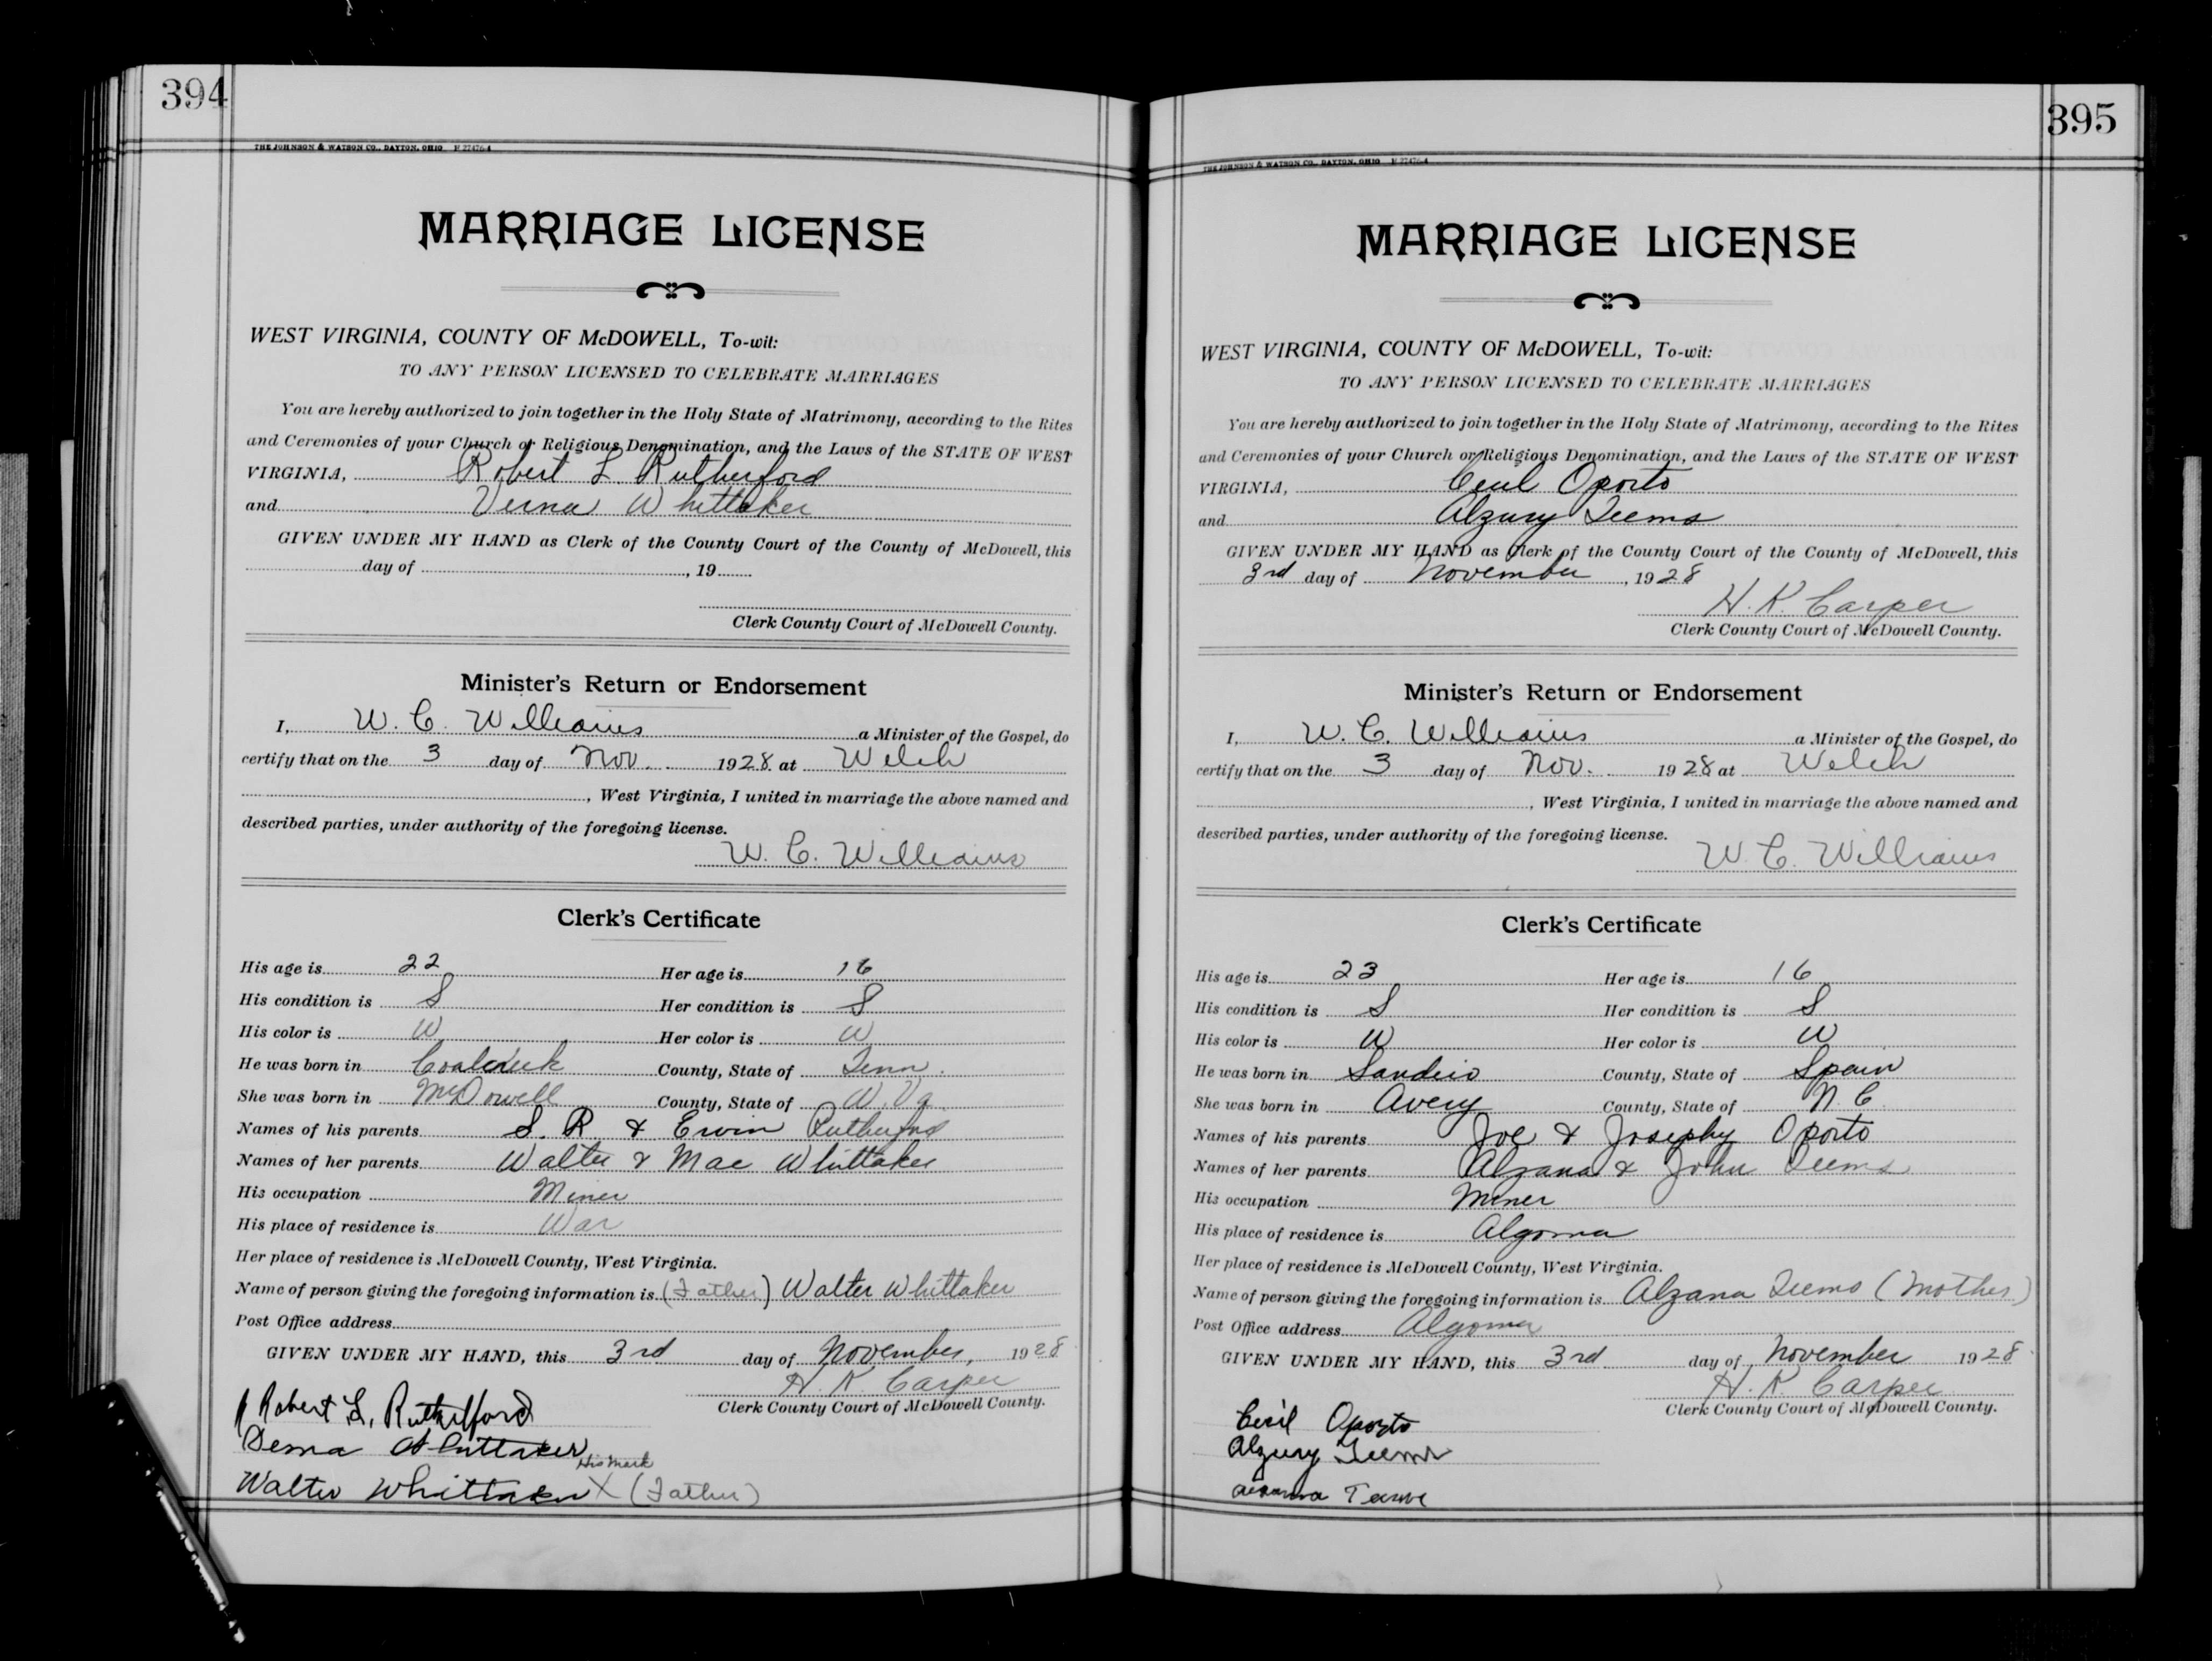 394
THE JOHNSON & WATSON CO., DAYTON, OHIO
MARRIAGE LICENSE
WEST VIRGINIA, COUNTY OF McDOWELL, To-wit:
TO ANY PERSON LICENSED TO CELEBRATE MARRIAGES
You are hereby authorized to join together in the Holy State of Matrimony, according to the Rites
and Ceremonies of your Church or Religious Denomination, and the Laws of the STATE OF WEST
VIRGINIA, Robert L. Rutherford
and Verna Whittaker
GIVEN UNDER MY HAND as Clerk of the County Court of the County of McDowell, this
day of , 19
Clerk County Court of McDowell County.
Minister's Return or Endorsement
I, W. C. Williams a Minister of the Gospel, do
certify that on the 3 day of Nov. 1928 at Welch
, West Virginia, I united in marriage the above named and
described parties, under authority of the foregoing license.
W. C. Williams
Clerk's Certificate
His age is 22 Her age is 16
His condition is S Her condition is S
His color is W Her color is W
He was born in County, State of Tenn.
She was born in McDowell County, State of W. Va.
Names of his parents S. R & Ervin Rutherford
Names of her parents Walter & Mae Whittaker
His occupation Miner
His place of residence is War
Her place of residence is McDowell County, West Virginia.
Name of person giving the foregoing information is (Father) Walter Whittaker
Post Office address
GIVEN UNDER MY HAND, this 3rd day of November, 1928
H. K. Carper
Clerk County Court of McDowell County.
Robert L. Rutherford
Whittaker
His Mark
Walter Whittaker X (Father)
395
THE JOHNSON & WATSON CO., DAYTON, OHIO
MARRIAGE LICENSE
WEST VIRGINIA, COUNTY OF McDOWELL, To-wit:
TO ANY PERSON LICENSED TO CELEBRATE MARRIAGES
You are hereby authorized to join together in the Holy State of Matrimony, according to the Rites
and Ceremonies of your Church or Religious Denomination, and the Laws of the STATE OF WEST
VIRGINIA, Cecil Oporto
and Alzury Teems
GIVEN UNDER MY HAND as Clerk of the County Court of the County of McDowell, this
3rd day of November, 1928
H. K. Carper
Clerk County Court of McDowell County.
Minister's Return or Endorsement
I, W. C. Williams a Minister of the Gospel, do
certify that on the 3 day of Nov. 1928 at Welch
, West Virginia, I united in marriage the above named and
described parties, under authority of the foregoing license.
W. C. Williams
Clerk's Certificate
His age is 23 Her age is 16
His condition is S Her condition is S
His color is W Her color is W
He was born in County, State of Spain
She was born in Avery County, State of N. C.
Names of his parents Joe & Josephy Oporto
Names of her parents Alzana & John Teems
His occupation Miner
His place of residence is Algoma
Her place of residence is McDowell County, West Virginia.
Name of person giving the foregoing information is Alzana Teems (Mother)
Post Office address Algoma
GIVEN UNDER MY HAND, this 3rd day of November 1928
H. K. Carper
Clerk County Court of McDowell County.
Cecil Oporto
Alzury Teems